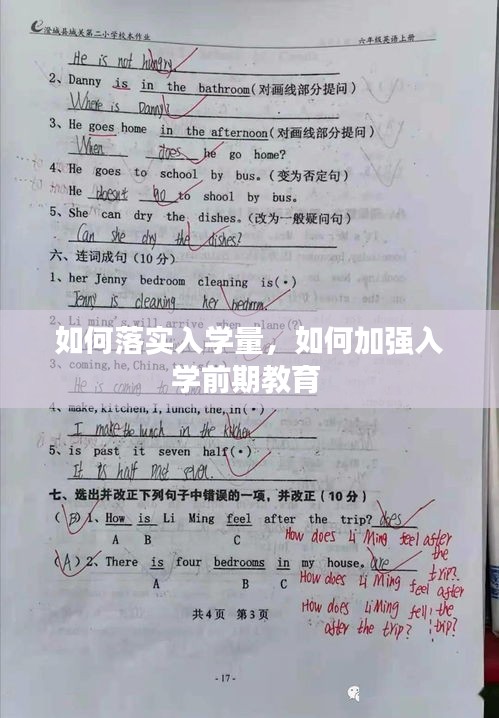 澄城县城关第二小学校本作业 六年级英语上册
He is not hungry
2、Danny is in the bathroom(对画线部分提问)
Where is Danny?
3、He goes home in the afternoon(对画线部分提问)
When does he go home?
4、He goes to school by bus。(变为否定句)
He doesn't go to shool by bus.
5、She can dry the dishes。(改为一般疑问句)
Can she dry the dishes?
六、连词成句(10分)
1. her Jenny bedroom cleaning is(•)
Jenny is cleaning her bedroom.
2、Li ming's will arrive when plane(?)
如何落实入学量，如何加强入
学前期教育
3、coming,he,China,
He is coming
4、make,kitchen,I,lunch,the,in(•)
I make the lunch in the kitchen
5、is past it seven half(•)
It is half past seven.
七、选出并改正下列句子中错误的一项，并改正(10分)
(B)1、How is Li Ming feel after the trip? does
A B C
How does Li Ming feel after the trip?
(A)2、There is four bedrooms in my house。are
A B C
How does Li Ming feel after the trip?
How does Li Ming fell after the trip?
共4页 第3页
-17-